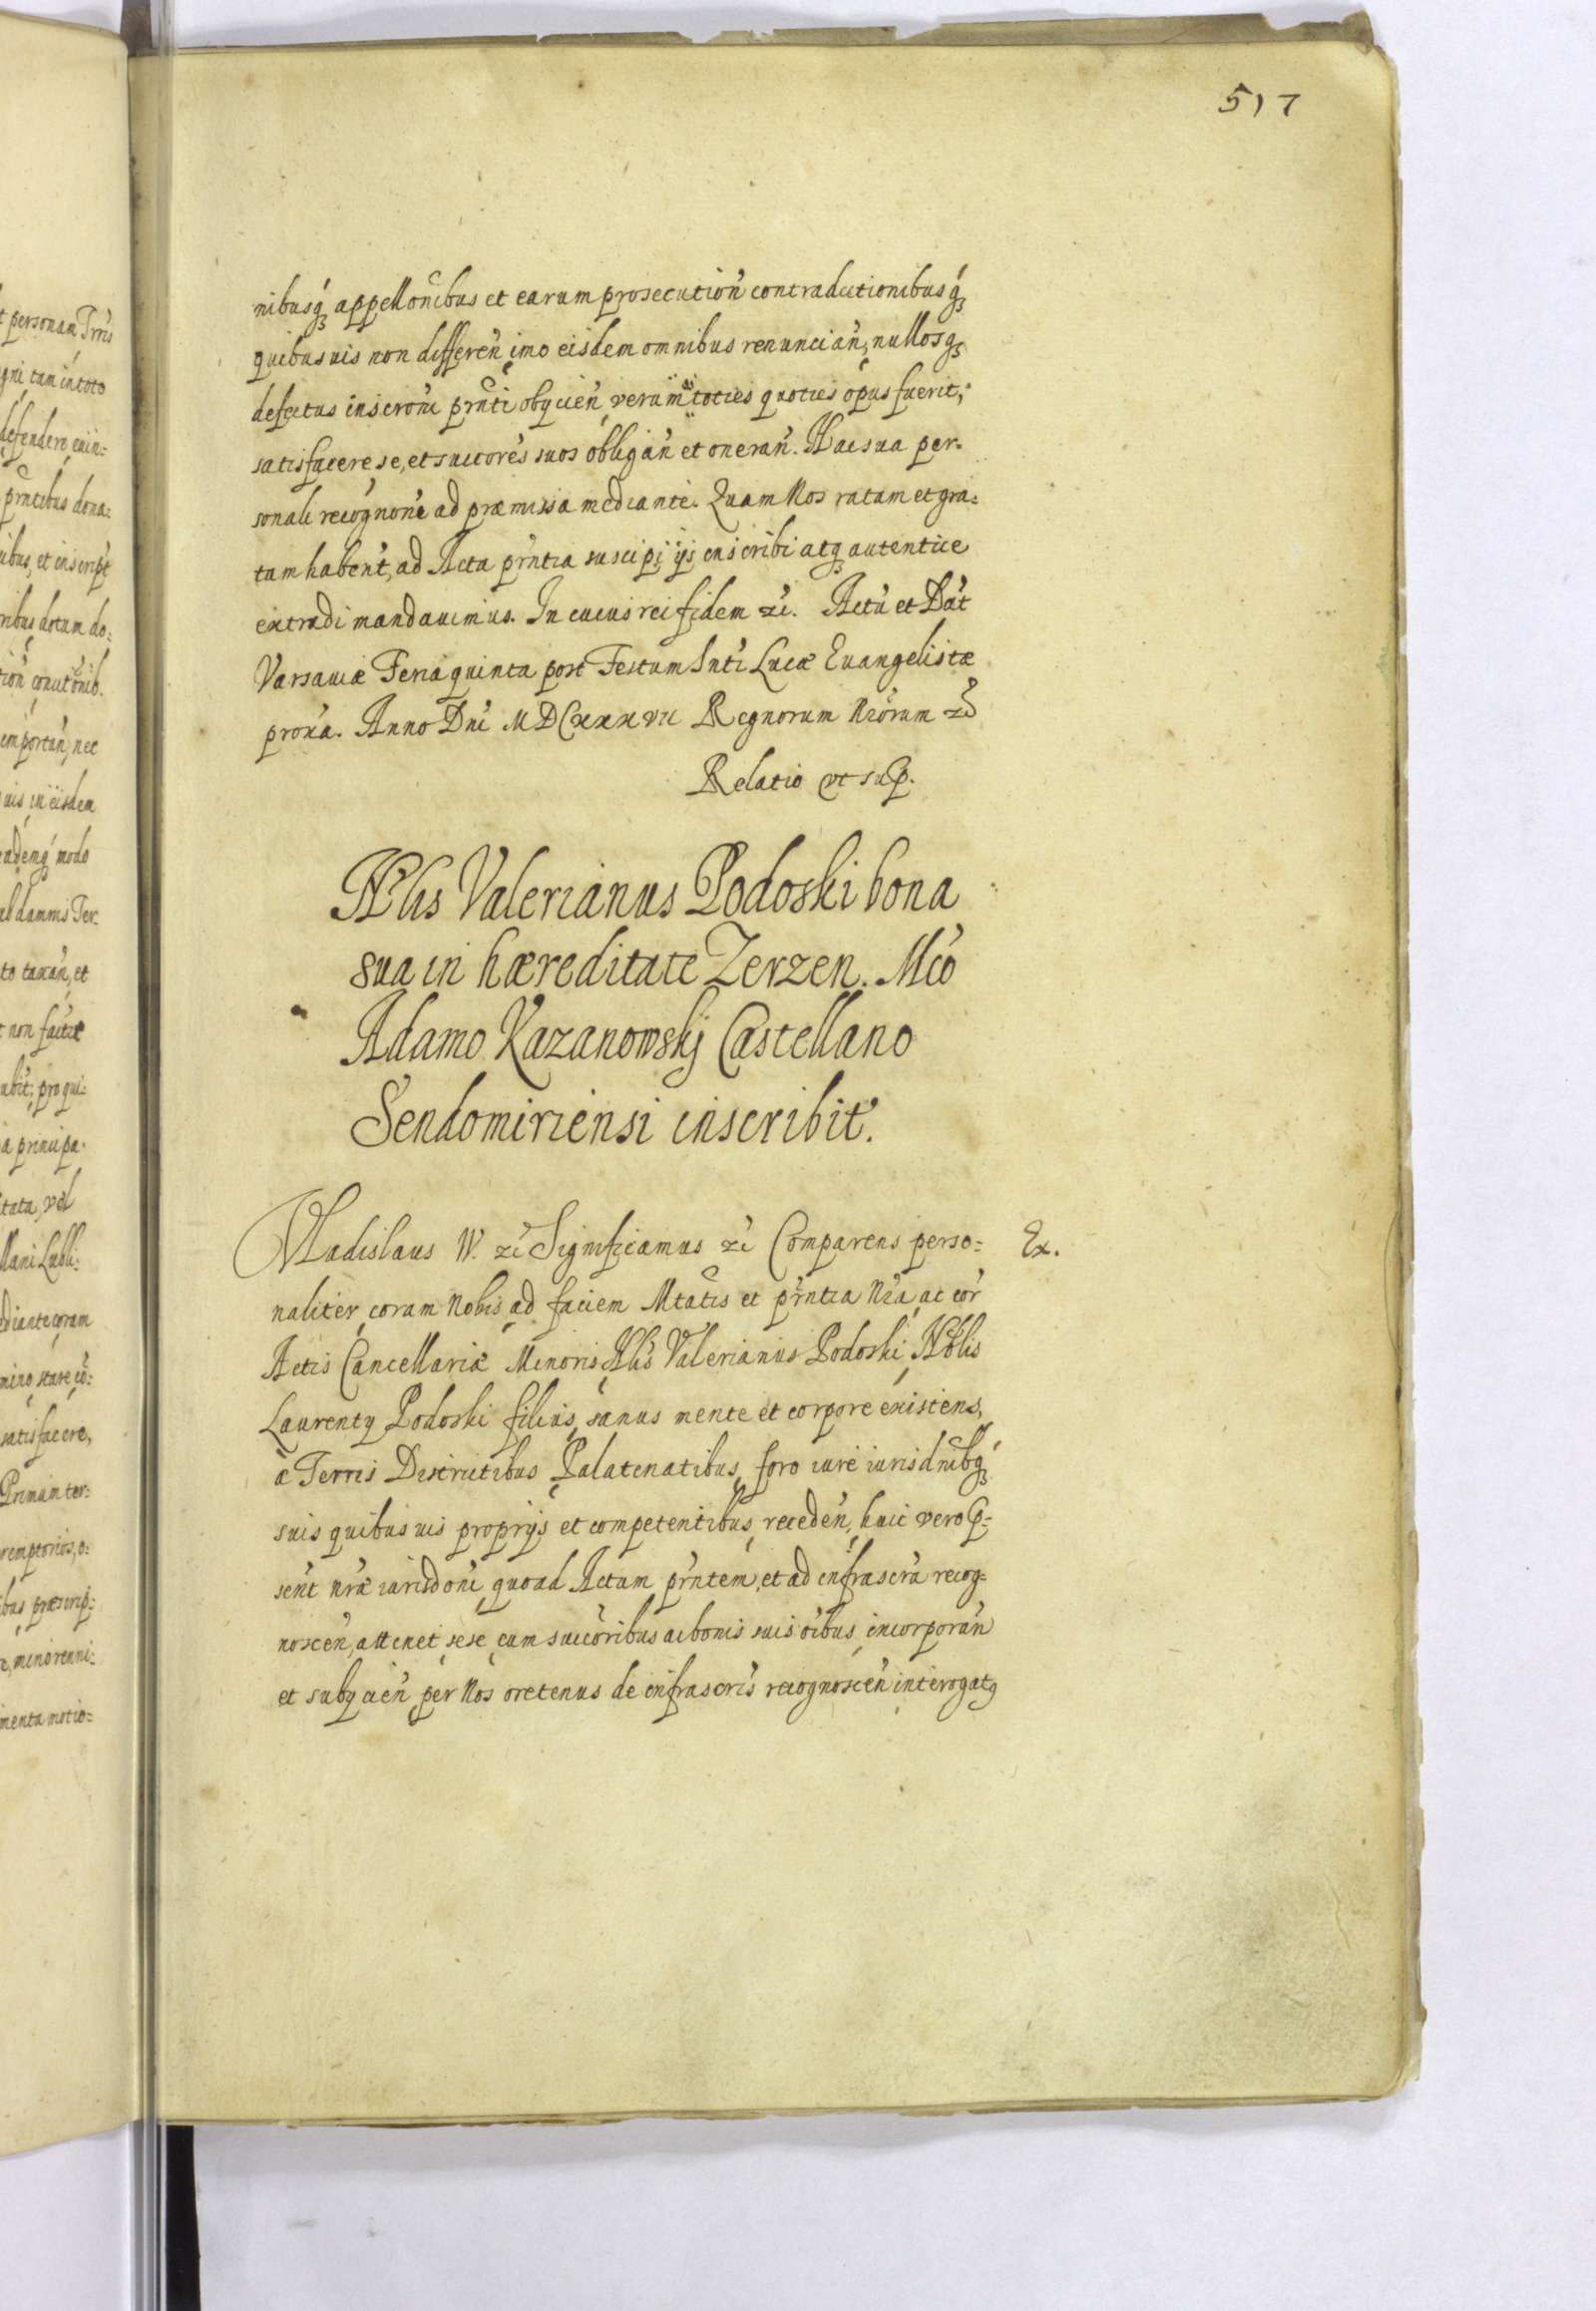 517
nibusq́ appellońibus et earum prosecutioń contradictionibusq́
quibusuis non differeń imo eisdem omnibus renunciań, nullosq
defectus inscrońi prńti obijcień, verum toties quoties opus fuerit,
satisfacere se, et succores suos obligań et onerań. Hac sua per-
sonali recognońe ad præmissa mediante. Quam Nos ratam et gra-
tam habent, ad Acta prńtia suscipi, ijs inscribi atq autentice
extradi mandauimus. In cuius rei fidem zc. Actu et Dat
Varsauiæ Feria quinta post Festum Snti Lucæ Euangelistæ
proxa. Anno Dni MDCxxxvii Regnorum Nrorum zc
Relatio vt sup.
Nblis Valerianus Podoski bona
sua in hæreditate Zerzen. Mco
Adamo Kazanowskj Castellano
Sendomiriensi inscribit.
Vladislaus IV. zc Significamus zc Comparens perso-
Ex.
naliter coram Nobis ad faciem Mtatis et prńtia Nra, ac cor
Actis Cancellariæ Minoris Nblis Valerianus Podoski, Nblis
Laurentij Podoski filius, sanus mente et corpore existens,
à Terris Districtibus Palatinatibus, foro iure iurisdnibq́
suis quibusuis proprijs et competentibus, recedeń, huic vero p-
sent nræ iurisdońi, quoad Actum prńtem, et ad infrascra recog-
nosceń, attinet sese cum succoribus ac bonis suis oibus, incorporań
et subijcień per Nos oretenus de infrascris recognosceń interogatq
t personam Trris
gni tam in toto
defendere euin-
prntibus dona-
ibus, et inscript
ribus dotum do-
emportań, nec
uis in eisdem
eademq́ modo
to taxań, et
t non facta
ubit, pro qui-
a principa-
tata, vel
llani Lubli-
diante coram
mino stare co-
satisfacere,
Primam ter-
remptorios, o-
ibus præscrip-
e, minorenni-
menta motio-